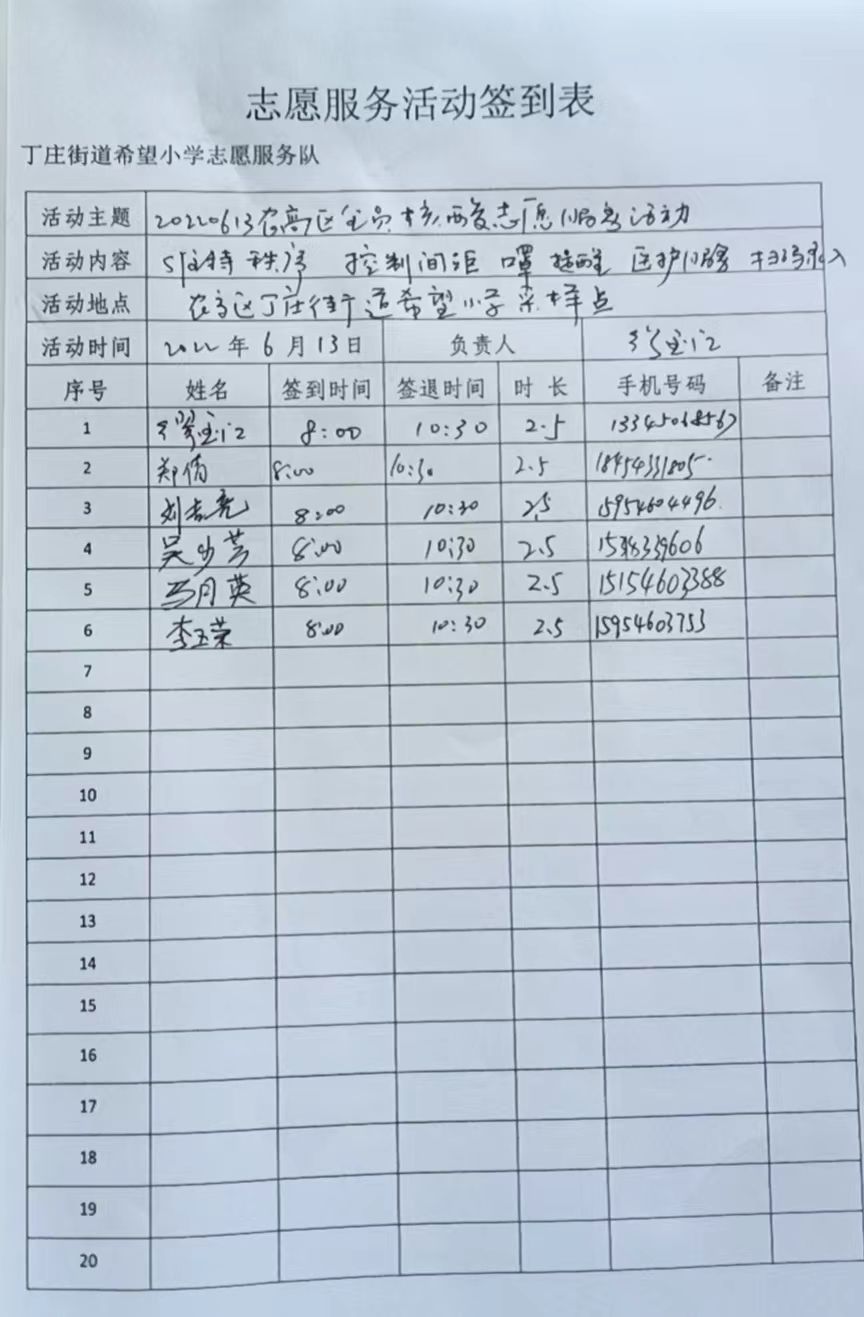 志愿服务活动签到表
丁庄街道希望小学志愿服务队
活动主题 20220613农高区全员核酸志愿服务活动
活动内容 维持秩序 控制间距 口罩提醒 医护服务 扫码录入
活动地点 农高区丁庄街道希望小学采样点
活动时间 2022年6月13日 负责人
序号 姓名 签到时间 签退时间 时长 手机号码 备注
1 8:00 10:30 2.5 13345068567
2 郑倩 8:00 10:30 2.5 18454331805
3 刘志亮 8:00 10:30 2.5 15954604496
4 吴少芸 8:00 10:30 2.5 1538339606
5 马月英 8:00 10:30 2.5 15154603388
6 李玉荣 8:00 10:30 2.5 15954603753
7
8
9
10
11
12
13
14
15
16
17
18
19
20